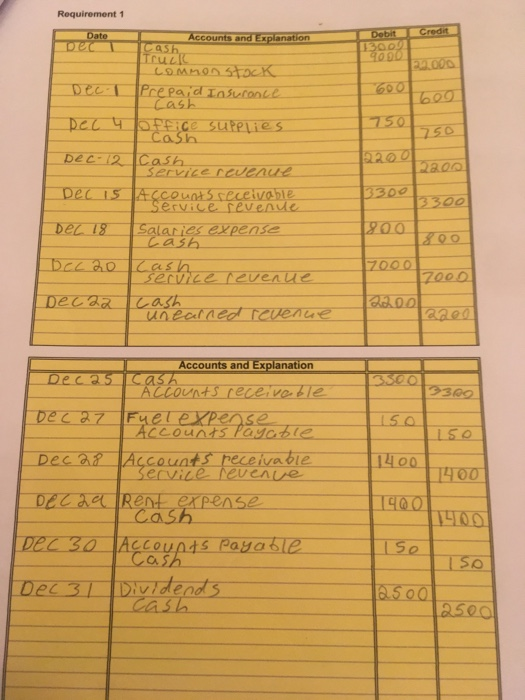 Requirement 1
Date Accounts and Explanation Debit Credit
Dec 1 Cash 13000
Truck 9000
Common stock 22000
Dec 1 Prepaid Insurance 600
Cash 600
Dec 4 office supplies 750
Cash 750
Dec 12 Cash 2200
service revenue 2200
Dec 15 Accounts receivable 3300
Service revenue 3300
Dec 18 Salaries expense 800
Cash 800
Dec 20 Cash 7000
service revenue 7000
Dec 22 Cash 2200
unearned revenue 2200
Accounts and Explanation
Dec 25 Cash 3300
Accounts receivable 3300
Dec 27 Fuel expense 150
Accounts Payable 150
Dec 28 Accounts receivable 1400
Service revenue 1400
Dec 29 Rent expense 1400
Cash 1400
Dec 30 Accounts Payable 150
Cash 150
Dec 31 Dividends 2500
Cash 2500